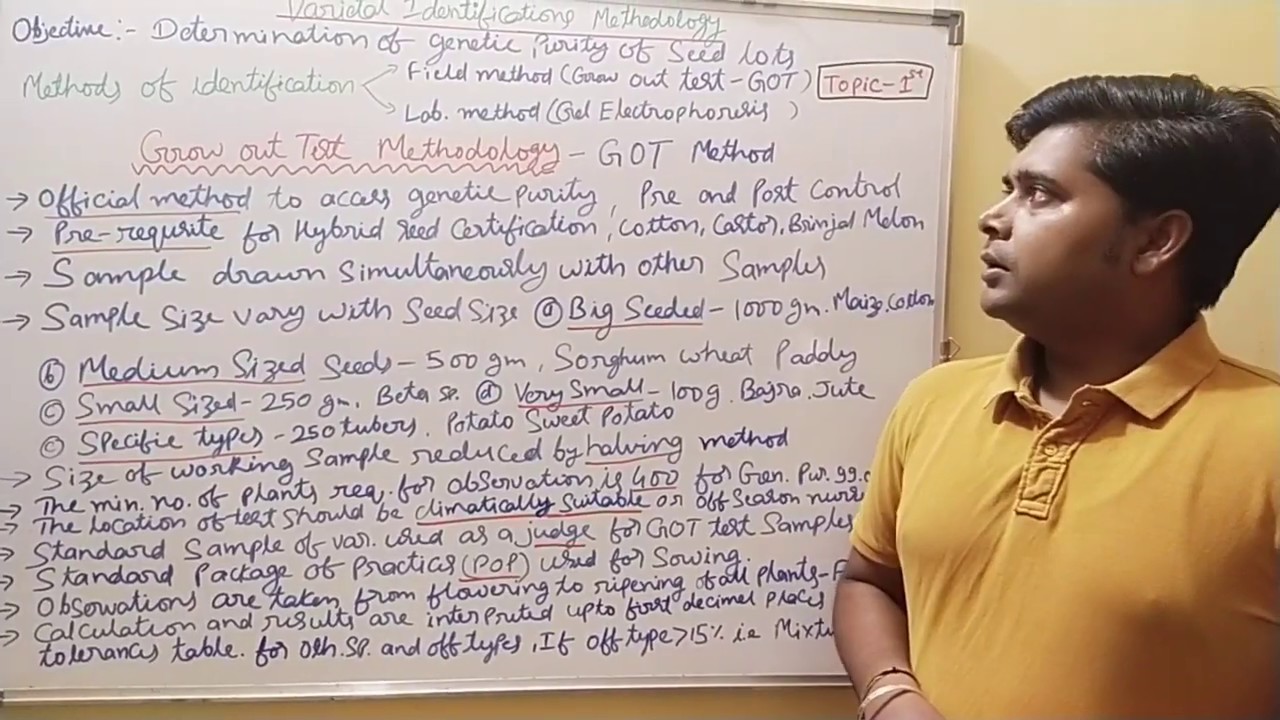 Varietal Identifications Methodology
Objective:- Determination of genetic Purity of Seed lots
Methods of identification
Field method (Grow out test - GOT)
Topic-1st
Lab. method (Gel Electrophoresis )
Grow out Test Methodology - GOT Method
→ Official method to access genetic purity, Pre and Post Control
→ Pre-requsite for Hybrid seed Certification, Cotton, Castor, Brinjal Melon
→ Sanmple drawn simultaneously with other Samples
→ Sample Size vary with Seed Size ⓐ Big Seeded - 1000 gm. Maize, Cotton
ⓑ Medium Sized Seeds - 500 gm, Sorghum wheat Paddy
ⓒ Small Sized - 250 gm, Beta sp. ⓓ Very Small - 100g. Bajra. Jute
ⓒ Specific types - 250 tubers. Potato Sweet Potato
→ Size of working Sample reduced by halving method
→ The min. no. of plants req. for observation is 400 for Gen. Pur. 99.
→ The location of test should be climatically suitable or off season
→ Standard Sample of var. used as a judge for GOT test Samples
→ Standard Package of Practics (POP) used for Sowing.
→ Observations are taken from flowering to ripening of all plants -
→ Calculation and results are interpreted upto first decimel places
tolerances table. for Oth. SP. and off types, If off type > 15% i.e Mixtu